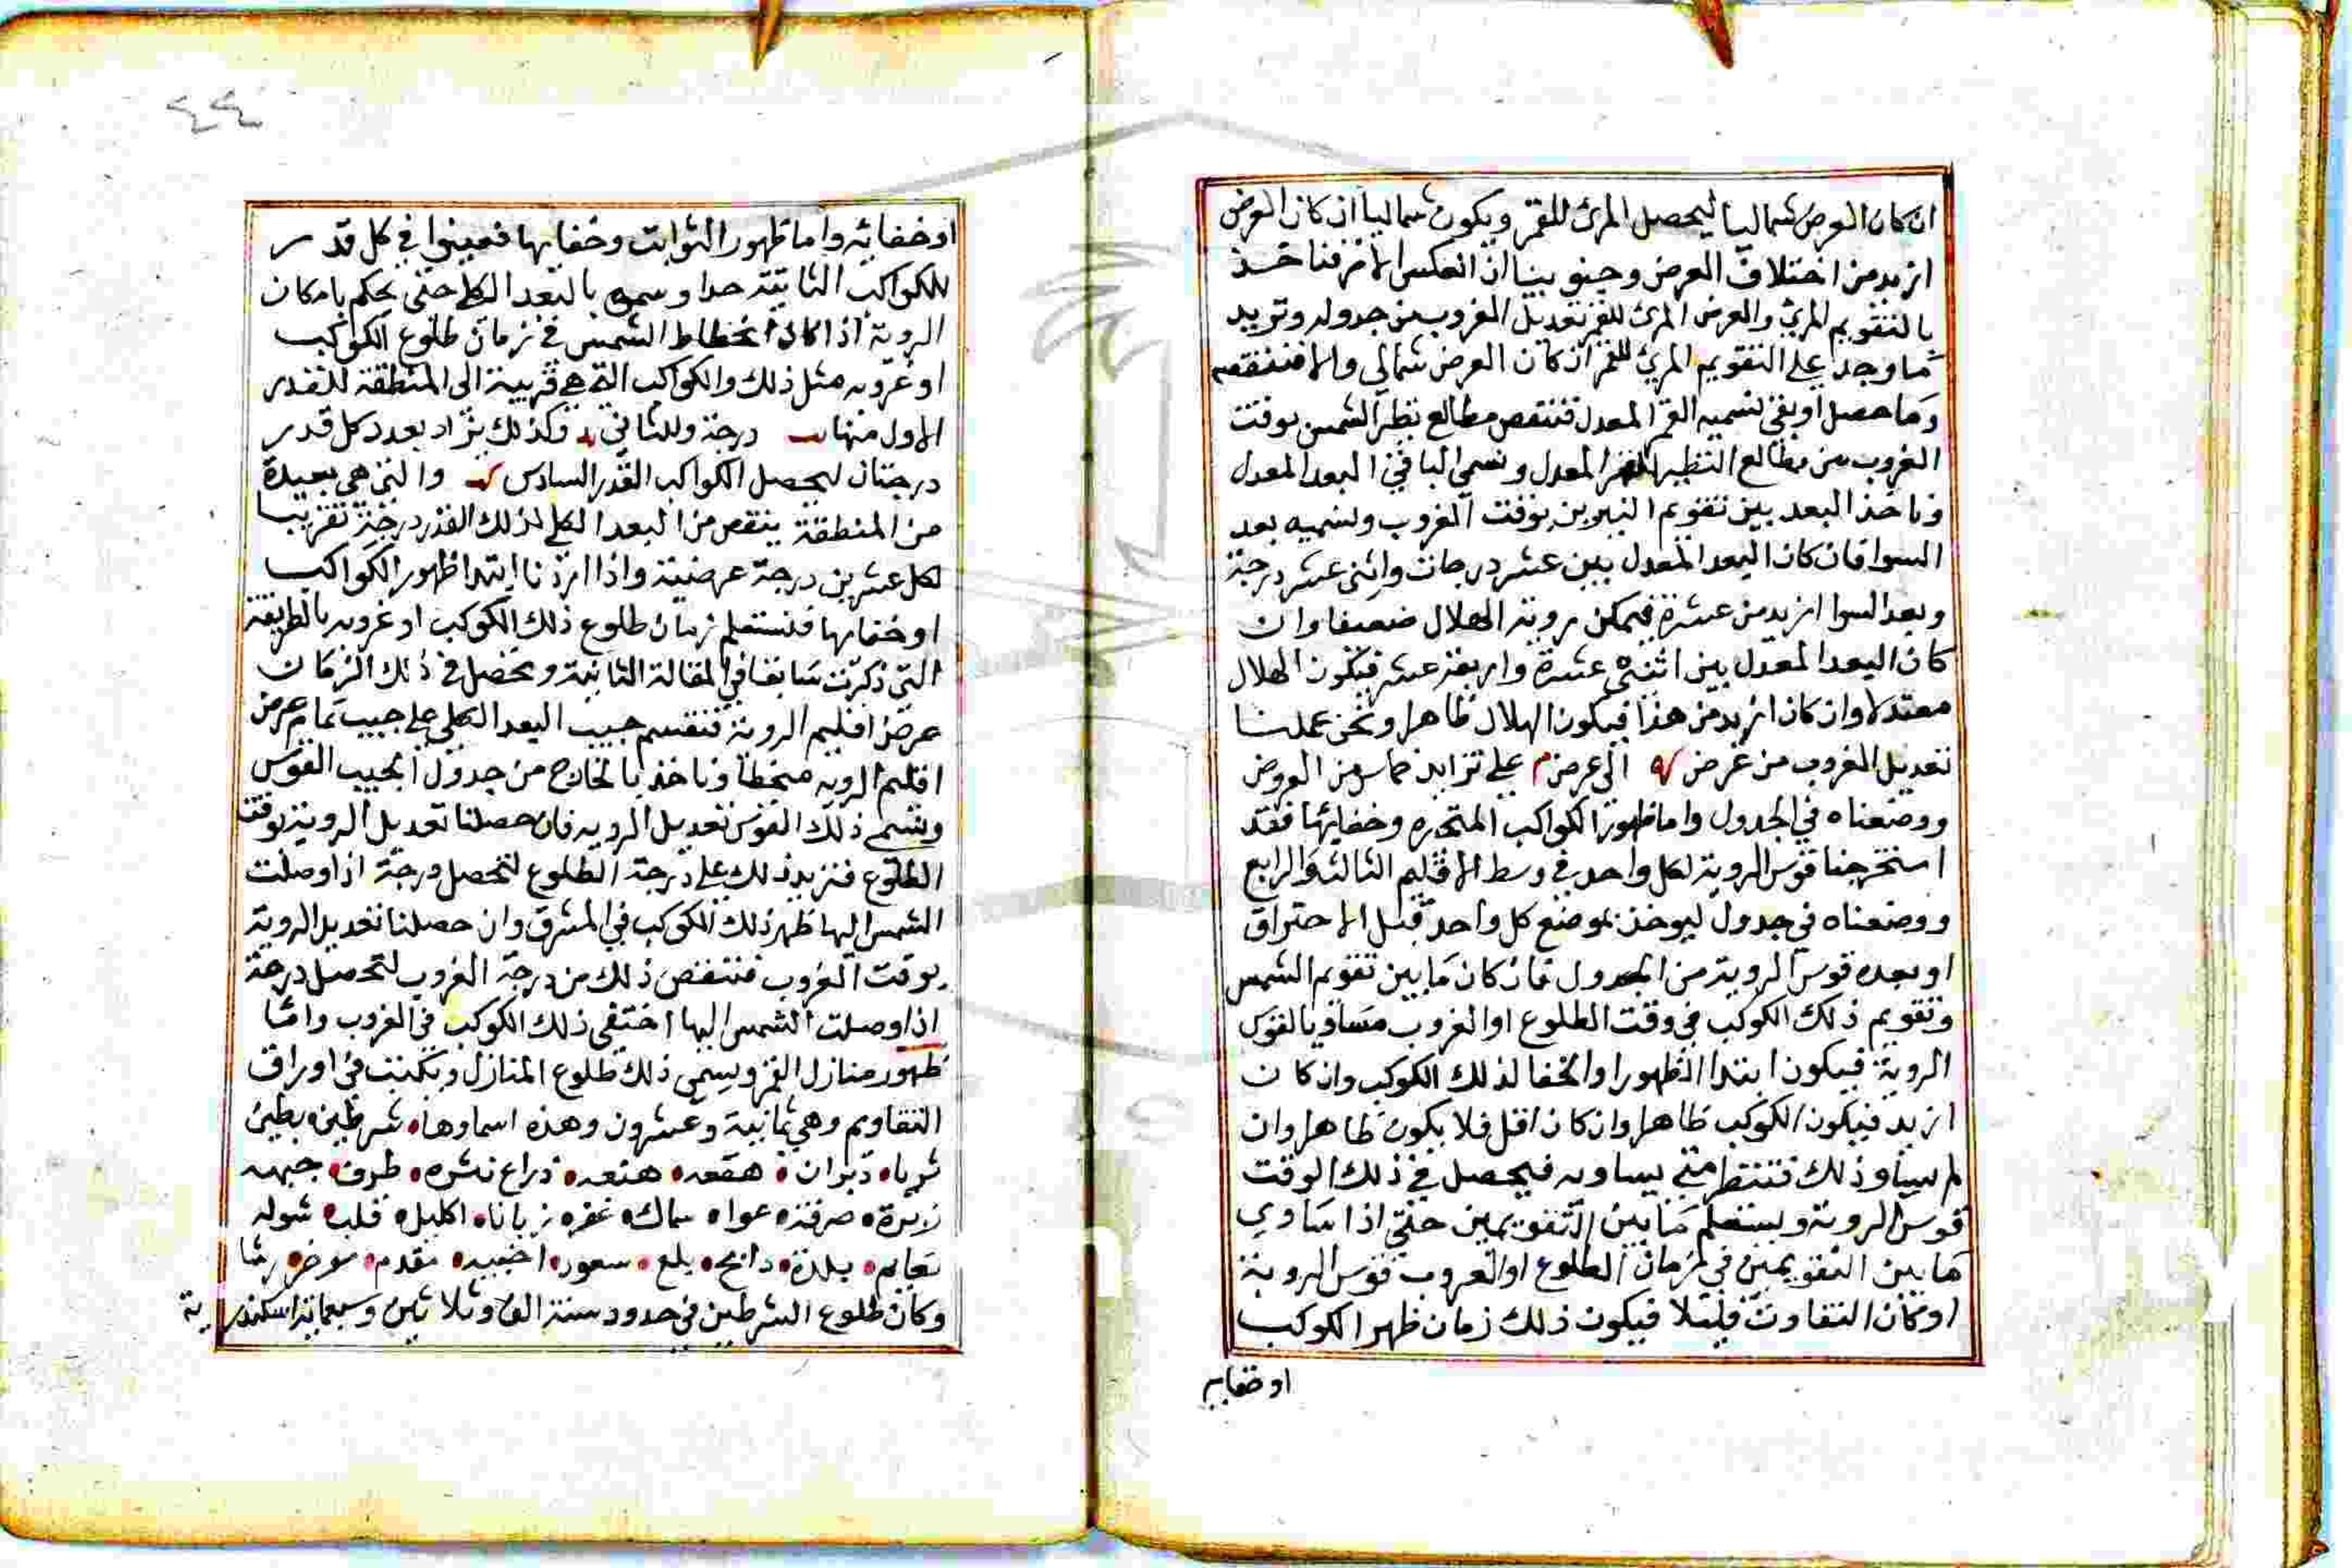 ان كان العرض شماليا ليحصل المرئ للقمر ويكون شماليا ان كان العرض
ازيد من اختلاف العرض وجنوبيا ان انعكس الامر فناخذ
بالتقويم المرئ والعرض المرئ للقمر تعديل الغروب من جدوله وتزيد
ما وجد على التقويم المرئ للقمر ان كان العرض شمالي والا فننقصه
وما حصل او بقي نسميه القمر المعدل فننقص مطالع نظير الشمس بوقت
الغروب من مطالع النظير القمر المعدل ونسمى الباقي البعد المعدل
وناخذ البعد بين تقويم النيرين بوقت الغروب ونسميه بعد
السوا فان كان البعد المعدل بين عشر درجات واثنى عشر درجة
وبعد السوا ازيد من عشرة فيمكن روية الهلال ضعيفا وان
كان البعد المعدل بين اثنى عشرة واربعة عشر فيكون الهلال
معتدلا وان كان ازيد من هذا فيكون الهلال ظاهرا ونحن عملنا
تعديل الغروب من عرض الى عرض م على تزايد خماس من العروض
ووضعناه في الجدول واما ظهور الكواكب المتحيره وخفائها فقد
استخرجنا قوس الروية لكل واحد في وسط الاقليم الثالث والرابع
ووضعناه في جدول ليوخذ بموضع كل واحد قبل الاحتراق
او بعده قوس الروية من الجدول فان كان ما بين تقويم الشمس
وتقويم ذلك الكوكب في وقت الطلوع او الغروب مساويا لقوس
الروية فيكون ابتدا الظهور او الخفا لذلك الكوكب وان كان
ازيد فيكون الكوكب ظاهرا وان كان اقل فلا يكون ظاهرا وان
لم يساو ذلك فننتظر متى يساويه فيحصل في ذلك الوقت
قوس الروية ويستعلم ما بين التقويمين حتى اذا ساوي
ما بين التقويمين في زمان الطلوع او الغروب قوس الروية
او كان التفاوت قليلا فيكون ذلك زمان ظهر الكوكب
او خفايه
٤٤
او خفائيه واما ظهور الثوابت وخفايها فعينوا في كل قدر
للكواكب الثابتة حدا وسموه بالبعد الكلى حتى يحكم بامكان
الروية اذا كان انحطاط الشمس في زمان طلوع الكواكب
او غروبه مثل ذلك والكواكب التى هي قريبة الى المنطقة للقدر
الاول منها درجة وللثاني وكذلك يزاد بعدد كل قدر
درجتان ليحصل الكواكب القدر السادس والتى هي بعيدة
من المنطقة ينقص من البعد الكلى لذلك القدر درجة تقريبا
لكل عشرين درجة عرضية واذا اردنا ابتدا ظهور الكواكب
او خفايها فنستعلم زمان طلوع ذلك الكوكب او غروبه بالطريقة
التى ذكرت سابقا في المقالة الثانية ويحصل في ذلك الزمان
عرض اقليم الروية فنقسم جيب البعد الكلى على جيب تمام عرض
اقليم الرويه منحطا وناخذ بالخارج من جدول الجيب القوس
ويسمى ذلك القوس تعديل الرويه فان حصلنا تعديل الروية بوقت
الطلوع فنزيد ذلك على درجة الطلوع لتحصل درجة اذا وصلت
الشمس اليها ظهر ذلك الكوكب في المشرق وان حصلنا تعديل الروية
بوقت الغروب فننقص ذلك من درجة الغروب لتحصل درجة
اذا وصلت الشمس اليها اختفى ذلك الكوكب في الغروب واما
ظهور منازل القمر ويسمى ذلك طلوع المنازل ويكتب في اوراق
التقاويم وهي ثمانية وعشرون وهذه اسماوها شرطين بطين
ثريا دبران هقعه هنعه ذراع نثره طرف جبهه
زبرة صرفة عوا سماك غفر زبانا اكليل قلب شوله
نعايم بلدة دابح بلع سعود اخبيه مقدم موخر رشا
وكان طلوع الشرطين في حدود سنة الف وثلاثين وسبعماية اسكندرية